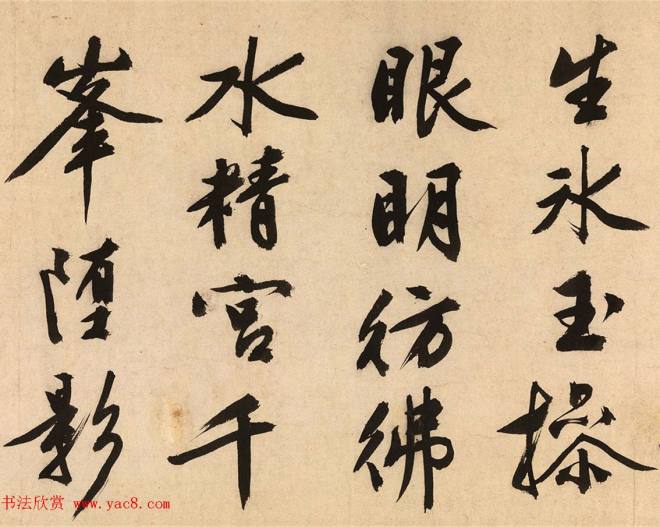 生冰玉操
眼明彷彿
水精宫千
峯堕影
书法欣赏 www.yac8.com